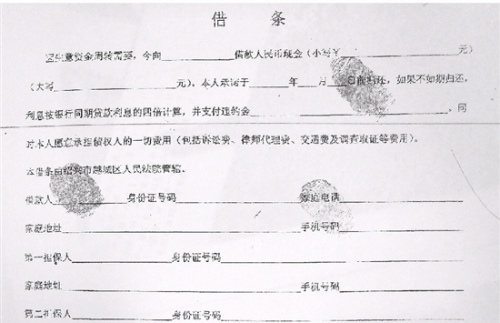 借 条
因生意资金周转需要，今向__________借款人民币现金（小写￥__________元）
（大写__________元），本人承诺于____年__月__日前归还，如果不如期归还，
利息按银行同期贷款利息的四倍计算，并支付违约金__________、同
时本人愿意承担债权人的一切费用（包括诉讼费、律师代理费、交通费及调查取证等费用）。
本借条由绍兴市越城区人民法院管辖、
借款人__________身份证号码__________家庭电话__________
家庭地址__________手机号码__________
第一担保人__________身份证号码__________
家庭地址__________手机号码__________
第二担保人__________身份证号码__________